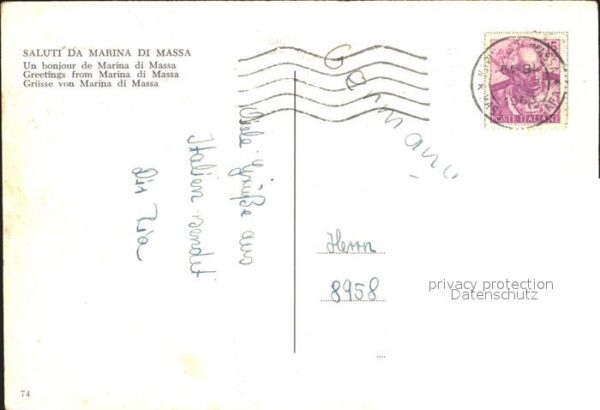 SALUTI DA MARINA DI MASSA
Un bonjour de Marina di Massa
Greetings from Marina di Massa
Grüsse von Marina di Massa
Viele Grüße aus
Italien sendet
dir
Germany
15
POSTE ITALIANE
Herrn
8958
privacy protection
Datenschutz
74